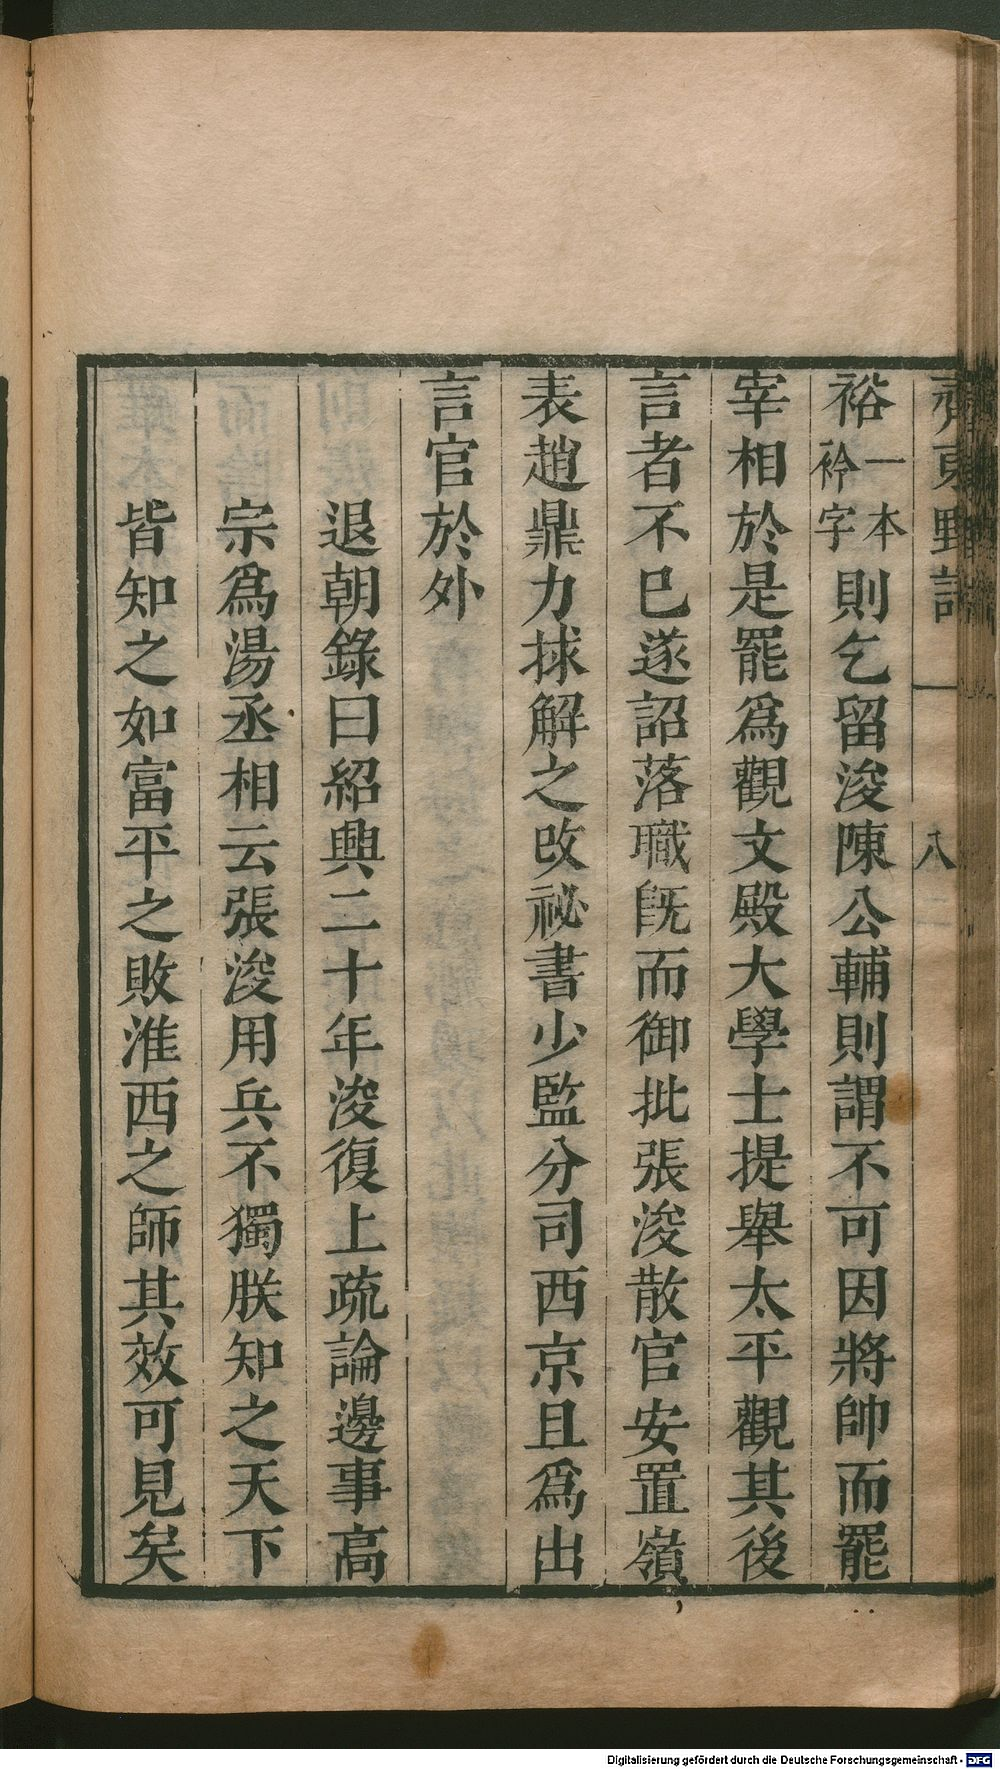 齊東野語 八
裕一本衿字則乞留浚陳公輔則謂不可因將帥而罷
宰相於是罷爲觀文殿大學士提舉太平觀其後
言者不巳遂詔落職旣而御批張浚散官安置嶺
表趙鼎力捄解之改祕書少監分司西京且爲出
言官於外
退朝錄曰紹興二十年浚復上疏論邊事高
宗爲湯丞相云張浚用兵不獨朕知之天下
皆知之如富平之敗淮西之師其效可見矣
Digitalisierung gefördert durch die Deutsche Forschungsgemeinschaft - DFG